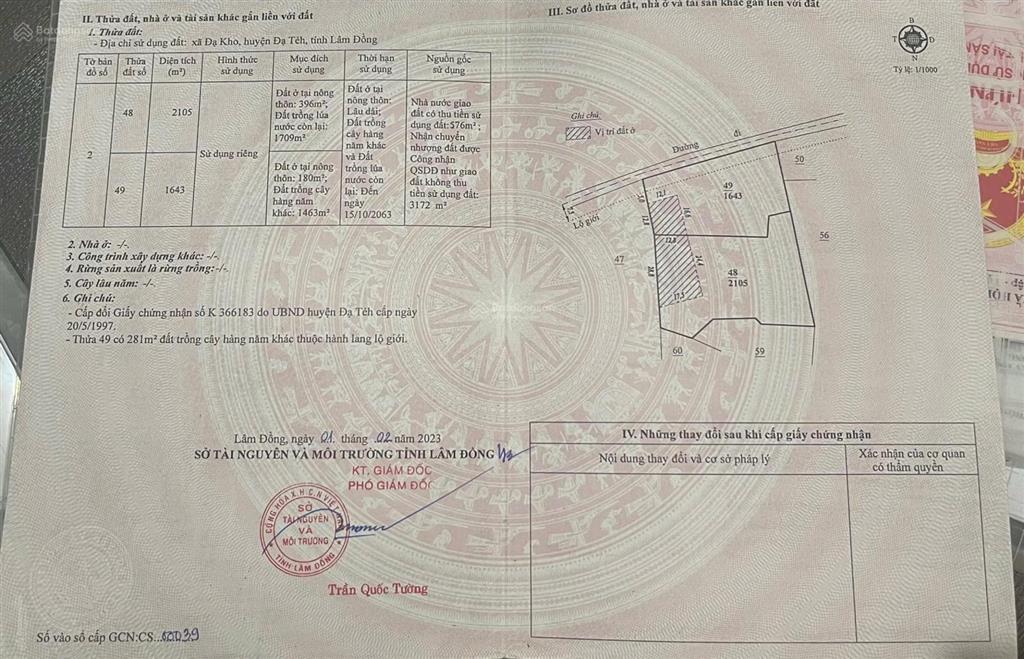 II. Thửa đất, nhà ở và tài sản khác gắn liền với đất
1. Thửa đất:
- Địa chỉ sử dụng đất: xã Đạ Kho, huyện Đạ Tẻh, tỉnh Lâm Đồng
Tờ bản đồ số
Thửa đất số
Diện tích (m²)
Hình thức sử dụng
Mục đích sử dụng
Thời hạn sử dụng
Nguồn gốc sử dụng
2
48
2105
49
1643
Sử dụng riêng
Đất ở tại nông
thôn: 396m²;
Đất trồng lúa
nước còn lại:
1709m²
Đất ở tại nông
thôn: 180m²;
Đất trồng cây
hàng năm
khác: 1463m²
Đất ở tại
nông thôn:
Lâu dài;
Đất trồng
cây hàng
năm khác
và Đất
trồng lúa
nước còn
lại: Đến
ngày
15/10/2063
Nhà nước giao
đất có thu tiền sử
dụng đất:576m²;
Nhận chuyển
nhượng đất được
Công nhận
QSDĐ như giao
đất không thu
tiền sử dụng đất:
3172 m²
2. Nhà ở: -/-.
3. Công trình xây dựng khác: -/-.
4. Rừng sản xuất là rừng trồng:-/-.
5. Cây lâu năm: -/-.
6. Ghi chú:
- Cấp đổi Giấy chứng nhận số K 366183 do UBND huyện Đạ Tẻh cấp ngày
20/5/1997.
- Thửa 49 có 281m² đất trồng cây hàng năm khác thuộc hành lang lộ giới.
Lâm Đồng, ngày 01 tháng 02 năm 2023
SỞ TÀI NGUYÊN VÀ MÔI TRƯỜNG TỈNH LÂM ĐỒNG
KT. GIÁM ĐỐC
PHÓ GIÁM ĐỐC
CỘNG HÒA X.H.C.N VIỆT NAM
SỞ
TÀI NGUYÊN
VÀ
MÔI TRƯỜNG
TỈNH LÂM ĐỒNG
Trần Quốc Tường
Số vào sổ cấp GCN:CS...00039
III. Sơ đồ thửa đất, nhà ở và tài sản khác gắn liền với đất
B
T
Đ
N
Tỷ lệ: 1/1000
Ghi chú:
Vị trí đất ở
Đường
đi
Lộ giới
50
49
1643
56
47
48
2105
60
59
12,1
12,8
17,5
IV. Những thay đổi sau khi cấp giấy chứng nhận
Nội dung thay đổi và cơ sở pháp lý
Xác nhận của cơ quan
có thẩm quyền